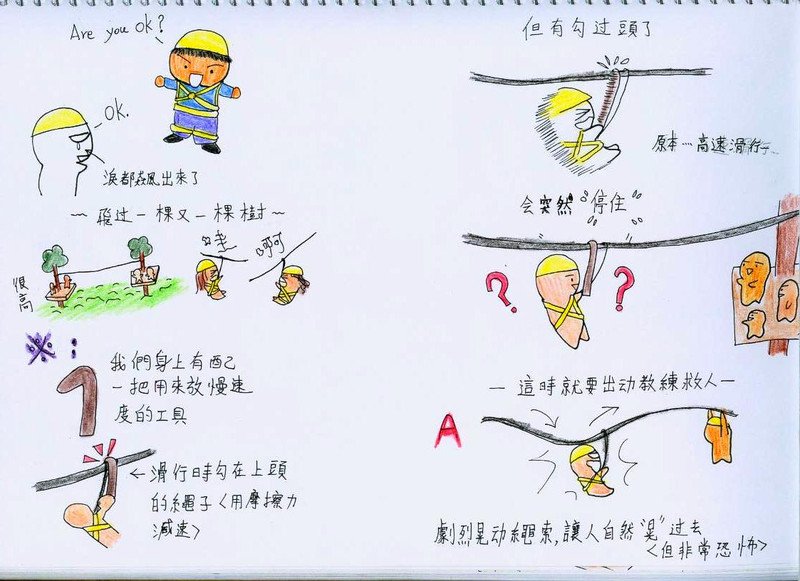 Are you ok?
OK.
淚都猋風出來了
～飛过一棵又一棵樹～
很高
哇
呵呵
※:
我們身上有配
一把用來放慢速
度的工具
←滑行時勾在上頭
的繩子<用摩擦力
減速>
但有勾过頭了
原本一高速滑行..
会突然"停住"
? ?
—這時就要出动教練救人—
A
劇烈晃动繩索,讓人自然"晃"过去
<但非常恐怖>